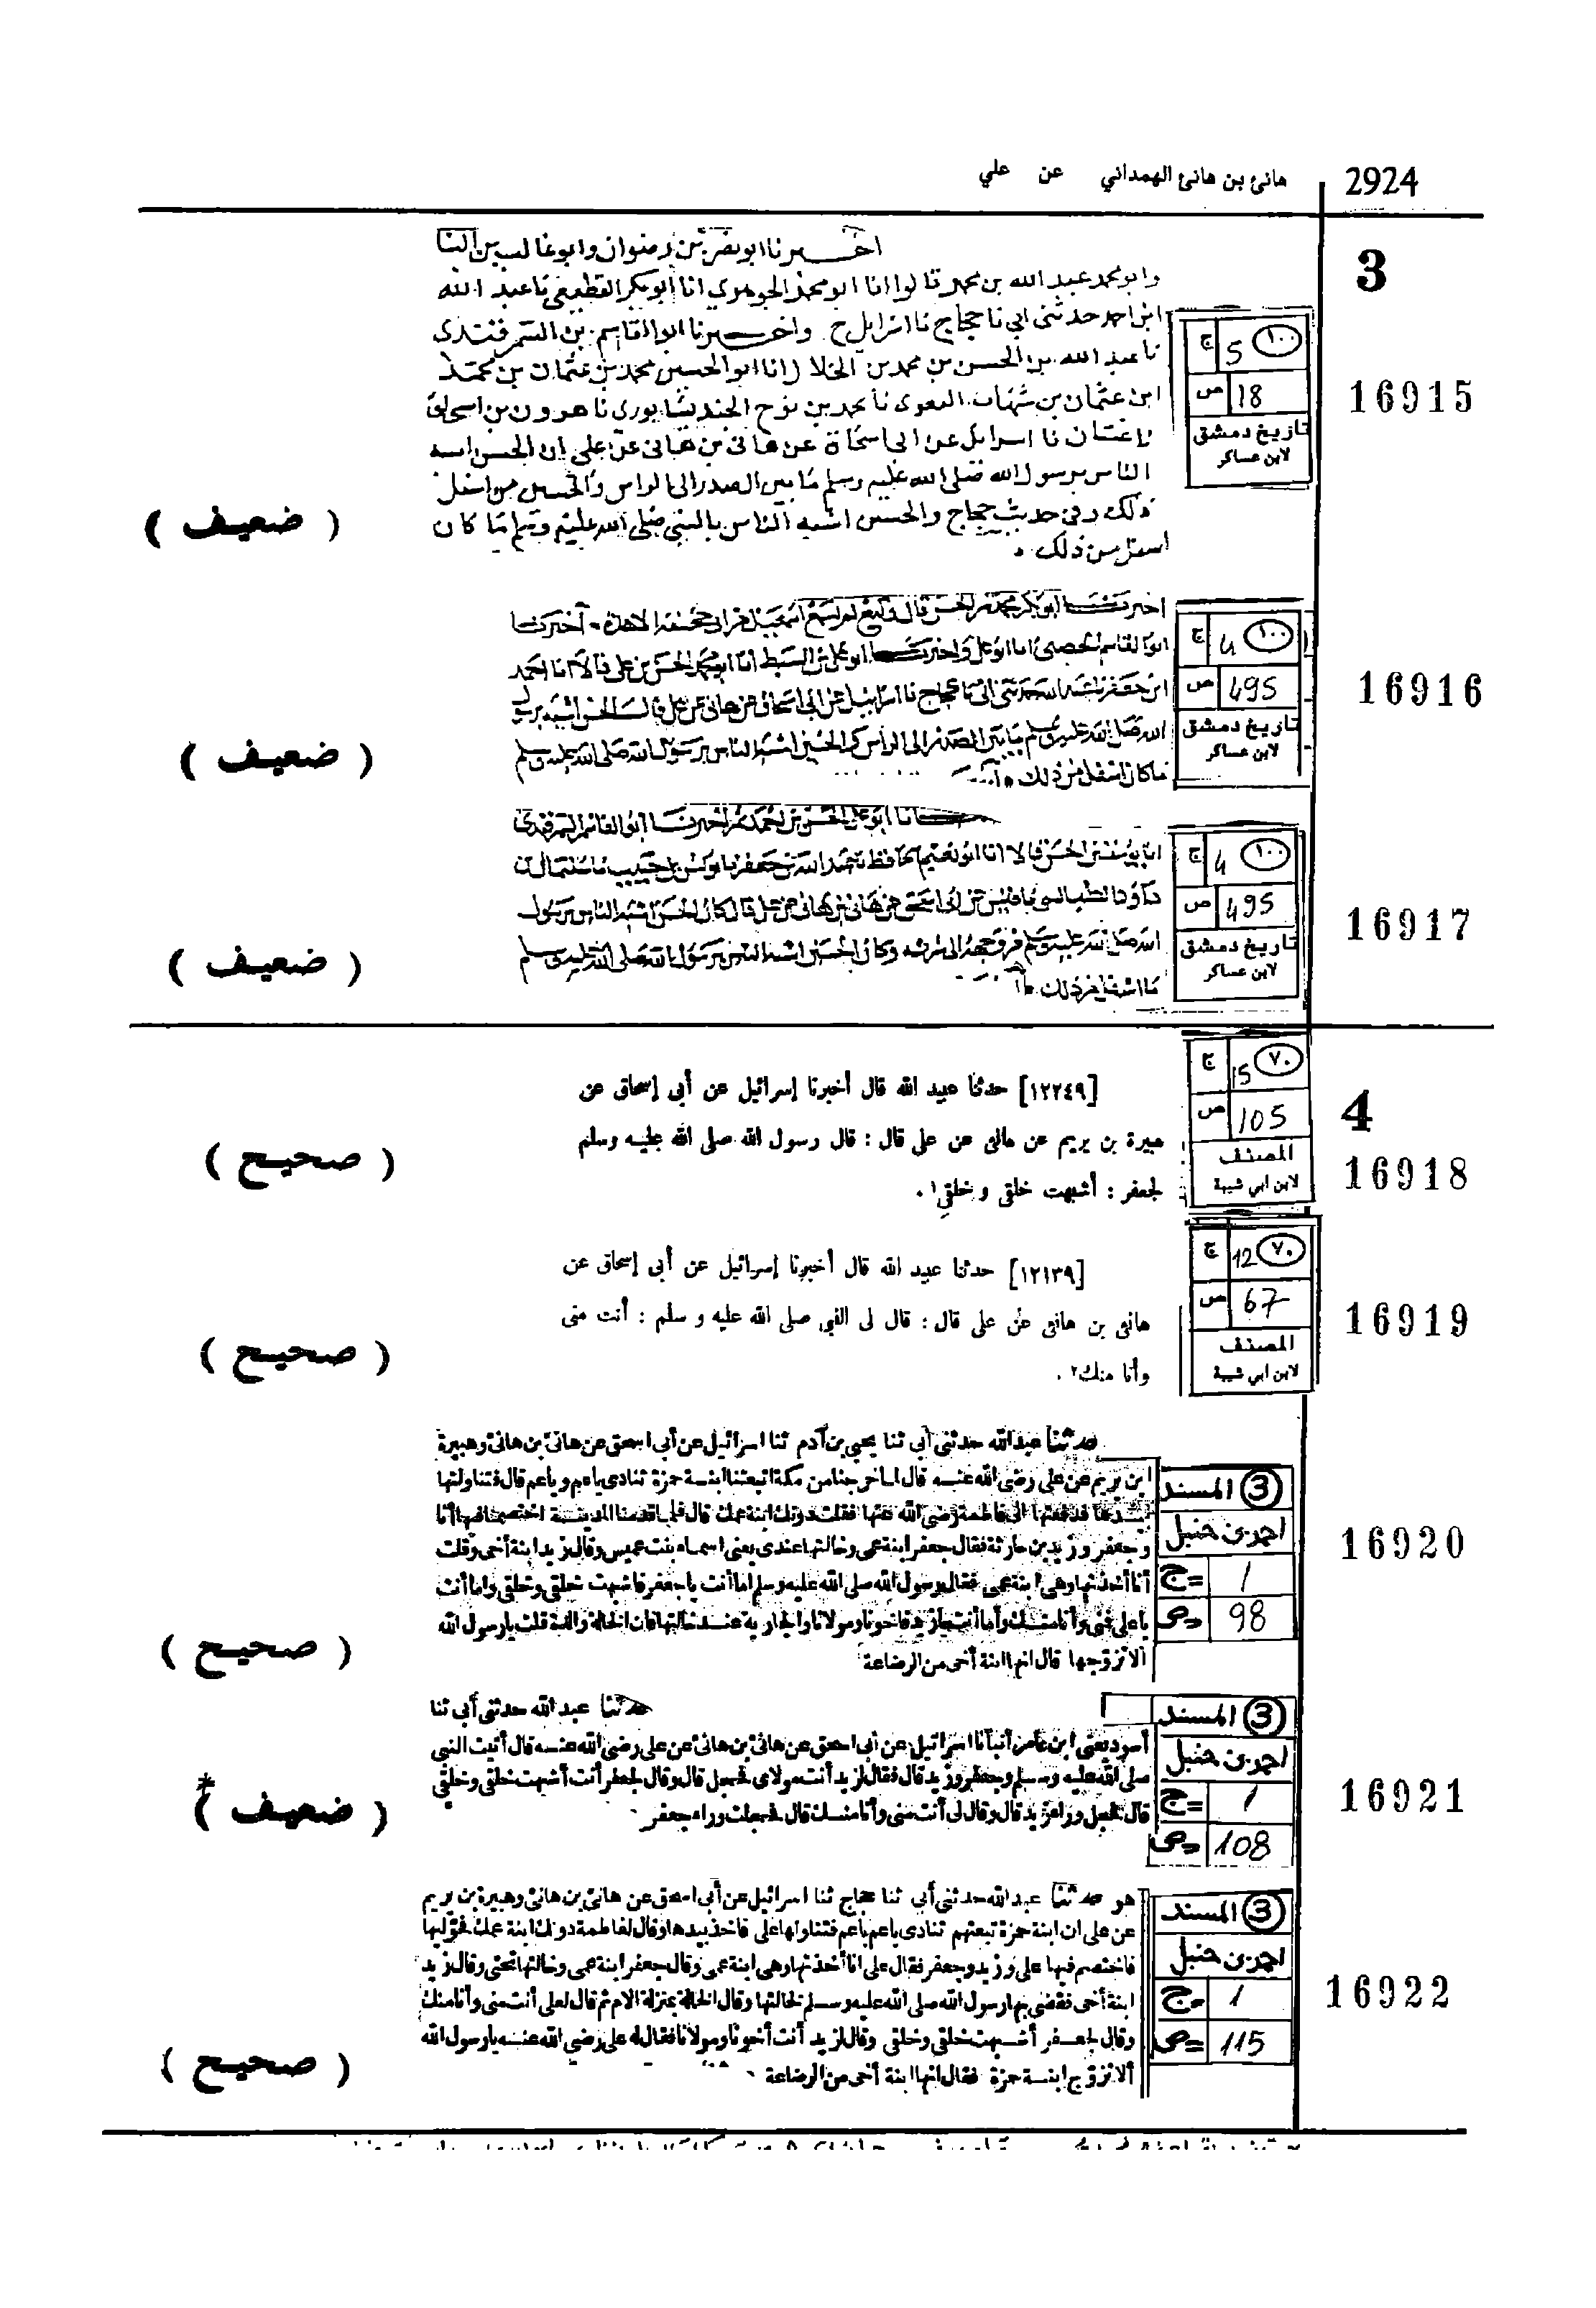 2924 هانئ بن هانئ الهمداني عن علي
3
اخبرنا ابو نصر بن رضوان وابو غالب بن البنا
وابو محمد عبد الله بن محمد قالوا انا ابو محمد الجوهري انا ابو بكر القطيعي نا عبد الله
ابن احمد حدثني ابي نا حجاج نا اسرايل ح واخبرنا ابو القاسم بن السمرقندي
نا عبد الله بن الحسن بن محمد بن الخلال انا ابو الحسين محمد بن عثمان بن محمد
ابن عثمان بن شهاب نا محمد بن نوح الجنديشابوري نا هرون بن اسحاق
نا اسرايل عن ابي اسحاق عن هانى بن هانى عن علي ان الحسن اشبه
الناس برسول الله صلى الله عليه وسلم ما بين الصدر الى الراس والحسين من اسفل
ذلك وفي حديث حجاج والحسين اشبه الناس بالنبي صلى الله عليه وسلم ما كان
اسفل من ذلك
١٠٠ 5 ج
18 ص
تاريخ دمشق
لابن عساكر
16915
( ضعيف )
ابو القاسم بن الحصين انا ابو علي
ابن جعفر نا عبد الله حدثني ابي نا حجاج نا اسرائيل عن ابي اسحاق عن هانئ عن علي قال الحسن اشبه برسول
الله صلى الله عليه وسلم ما بين الصدر الى الراس والحسين اشبه الناس برسول الله صلى الله عليه وسلم
ما كان اسفل من ذلك
١٠٠ 4 ج
495 ص
تاريخ دمشق
لابن عساكر
16916
( ضعيف )
انا ابو علي الحسن بن احمد اخبرنا ابو القاسم السمرقندي
انا يوسف بن الحسن قالا انا ابو نعيم الحافظ نا عبد الله بن جعفر نا يونس بن حبيب نا سليمان بن
داود الطيالسي نا قيس عن ابي اسحق عن هانئ بن هانئ عن علي قال كان الحسن اشبه الناس برسول
الله صلى الله عليه وسلم من وجهه الى سرته وكان الحسين اشبه الناس برسول الله صلى الله عليه وسلم
ما اسفل من ذلك
١٠٠ 4 ج
495 ص
تاريخ دمشق
لابن عساكر
16917
( ضعيف )
4
[١٢٢٤٩] حدثنا عبيد الله قال أخبرنا إسرائيل عن أبي إسحاق عن
هبيرة بن يريم عن هانئ عن علي قال : قال رسول الله صلى الله عليه وسلم
لجعفر : أشبهت خلقي و خلقي١ .
٧٠ 15 ج
105 ص
المصنف
لابن ابي شيبة
16918
( صحيح )
[١٢١٣٩] حدثنا عبيد الله قال أخبرنا إسرائيل عن أبي إسحاق عن
هانئ بن هانئ عن علي قال : قال لي النبي صلى الله عليه و سلم : أنت منى
وأنا منك٢ .
٧٠ 12 ج
67 ص
المصنف
لابن ابي شيبة
16919
( صحيح )
حدثنا عبدالله حدثني أبي ثنا يحيى بن آدم ثنا اسرائيل عن أبي اسحق عن هانئ بن هانئ وهبيرة
ابن يريم عن على رضى الله عنه قال لما خرجنا من مكة اتبعتنا ابنة حمزة تنادى يا عم ويا عم قال فتناولتها
بيدها فدفعتها الى فاطمة رضى الله عنها فقلت دونك ابنة عمك قال فلما قدمنا المدينة اختصمنا فيها أنا
وجعفر وزيد بن حارثة فقال جعفر ابنة عمى وخالتها عندى يعنى اسماء بنت عميس وقال زيد ابنة أخى وقلت
أنا أخذتها وهى ابنة عمى فقال رسول الله صلى الله عليه وسلم اما أنت يا جعفر فاشبهت خلقى وخلقى وأما أنت
يا على فمنى وأنا منك وأما أنت يا زيد فاخونا ومولانا والجارية عند خالتها فان الخالة والدة قلت يا رسول الله
ألا تزوجها قال انها ابنة أخى من الرضاعة
3 المسند
احمد بن حنبل
1 ج=
98 ص=
16920
( صحيح )
حدثنا عبد الله حدثني أبي ثنا
أسود يعنى ابن عامر أنبأنا اسرائيل عن أبى اسحق عن هانئ بن هانئ عن على رضى الله عنه قال أتيت النبى
صلى الله عليه وسلم وجعفر وزيد قال فقال لزيد أنت مولاى فحجل قال وقال لجعفر أنت أشبهت خلقى وخلقى
قال فحجل وراء زيد قال وقال لى أنت منى وأنا منك قال فحجلت وراء جعفر
3 المسند
احمد بن حنبل
1 ج=
108 ص=
16921
( ضعيف )*
هو حدثنا عبدالله حدثني أبي ثنا حجاج ثنا اسرائيل عن أبى اسحق عن هانئ بن هانئ وهبيرة بن يريم
عن على ان ابنة حمزة تبعتهم تنادى يا عم يا عم فتناولها على فاخذ بيدها وقال لفاطمة دونك ابنة عمك فحوليها
فاختصم فيها على وزيد وجعفر فقال على انا أخذتها وهى ابنة عمى وقال جعفر ابنة عمى وخالتها تحتى وقال زيد
ابنة أخى فقضى بها رسول الله صلى الله عليه وسلم لخالتها وقال الخالة بمنزلة الام ثم قال لعلى أنت منى وأنا منك
وقال لجعفر أشبهت خلقى وخلقى وقال لزيد أنت أخونا ومولانا فقال له على رضى الله عنه يا رسول الله
ألا تزوج ابنة حمزة فقال انها ابنة أخى من الرضاعة
3 المسند
احمد بن حنبل
1 ج=
115 ص=
16922
( صحيح )